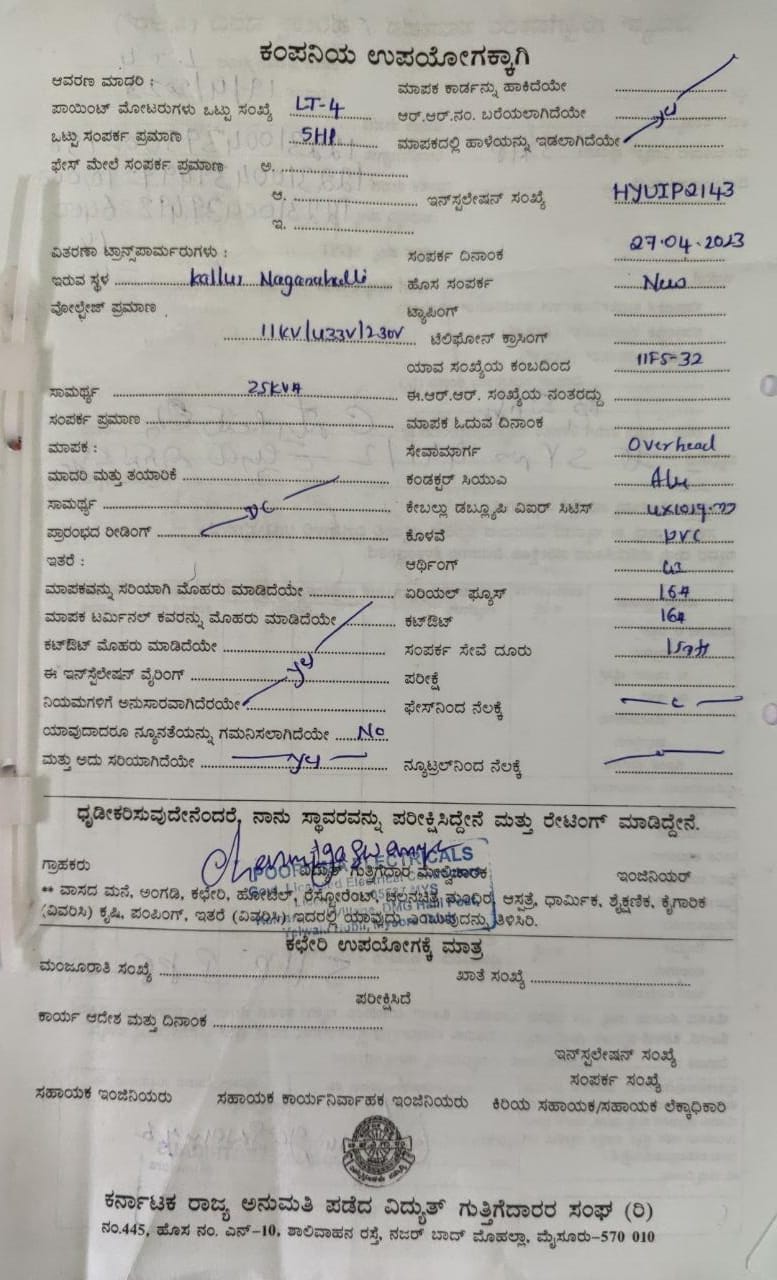 ಕಂಪನಿಯ ಉಪಯೋಗಕ್ಕಾಗಿ
ಆವರಣ ಮಾದರಿ : ಮಾಪಕ ಕಾರ್ಡನ್ನು ಹಾಕಿದೆಯೇ
ಪಾಯಿಂಟ್ ಮೋಟರುಗಳು ಒಟ್ಟು ಸಂಖ್ಯೆ LT-4 ಆರ್.ಆರ್.ನಂ. ಬರೆಯಲಾಗಿದೆಯೇ
ಒಟ್ಟು ಸಂಪರ್ಕ ಪ್ರಮಾಣ 5HP ಮಾಪಕದಲ್ಲಿ ಹಾಳೆಯನ್ನು ಇಡಲಾಗಿದೆಯೇ
ಫೇಸ್ ಮೇಲೆ ಸಂಪರ್ಕ ಪ್ರಮಾಣ ಅ.
ಆ. ಇನ್‌ಸ್ಪಲೇಷನ್ ಸಂಖ್ಯೆ HYUIP2143
ಇ.
ವಿತರಣಾ ಟ್ರಾನ್ಸ್‌ಫಾರ್ಮರುಗಳು : ಸಂಪರ್ಕ ದಿನಾಂಕ 27.04.2023
ಇರುವ ಸ್ಥಳ Kallur Naganahalli ಹೊಸ ಸಂಪರ್ಕ New
ವೋಲ್ಟೇಜ್ ಪ್ರಮಾಣ ಟ್ಯಾಪಿಂಗ್
11KV/433V/230V ಟೆಲಿಫೋನ್ ಕ್ರಾಸಿಂಗ್
ಯಾವ ಸಂಖ್ಯೆಯ ಕಂಬದಿಂದ 11FS-32
ಸಾಮರ್ಥ್ಯ 25KVA ಈ.ಆರ್.ಆರ್. ಸಂಖ್ಯೆಯ ನಂತರದ್ದು
ಸಂಪರ್ಕ ಪ್ರಮಾಣ ಮಾಪಕ ಓದುವ ದಿನಾಂಕ
ಮಾಪಕ : ಸೇವಾಮಾರ್ಗ Overhead
ಮಾದರಿ ಮತ್ತು ತಯಾರಿಕೆ ಕಂಡಕ್ಟರ್ ಸಿಯುಎ Alu
ಸಾಮರ್ಥ್ಯ DC ಕೇಬಲ್ಲು ಡಬ್ಲ್ಯೂಪಿ ವಿಐರ್ ಸಿಟಿಸ್
ಪ್ರಾರಂಭದ ರೀಡಿಂಗ್ ಕೊಳವೆ PVC
ಇತರೆ : ಆರ್ಥಿಂಗ್ GI
ಮಾಪಕವನ್ನು ಸರಿಯಾಗಿ ಮೊಹರು ಮಾಡಿದೆಯೇ ಏರಿಯಲ್ ಫ್ಯೂಸ್ 16A
ಮಾಪಕ ಟರ್ಮಿನಲ್ ಕವರನ್ನು ಮೊಹರು ಮಾಡಿದೆಯೇ ಕಟ್‌ಔಟ್ 16A
ಕಟ್‌ಔಟ್ ಮೊಹರು ಮಾಡಿದೆಯೇ ಸಂಪರ್ಕ ಸೇವೆ ದೂರು
ಈ ಇನ್‌ಸ್ಟೆಲೇಷನ್ ವೈರಿಂಗ್ ಪರೀಕ್ಷೆ
ನಿಯಮಗಳಿಗೆ ಅನುಸಾರವಾಗಿದೆರಯೇ ಫೇಸ್‌ನಿಂದ ನೆಲಕ್ಕೆ
ಯಾವುದಾದರೂ ನ್ಯೂನತೆಯನ್ನು ಗಮನಿಸಲಾಗಿದೆಯೇ No
ಮತ್ತು ಅದು ಸರಿಯಾಗಿದೆಯೇ ನ್ಯೂಟ್ರಲ್‌ನಿಂದ ನೆಲಕ್ಕೆ
ಧೃಡೀಕರಿಸುವುದೇನೆಂದರೆ, ನಾನು ಸ್ಥಾವರವನ್ನು ಪರೀಕ್ಷಿಸಿದ್ದೇನೆ ಮತ್ತು ರೇಟಿಂಗ್ ಮಾಡಿದ್ದೇನೆ.
ಗ್ರಾಹಕರು ವಿದ್ಯುತ್ ಗುತ್ತಿಗೆದಾರ ಮೇಲ್ವಿಚಾರಕ ಇಂಜಿನಿಯರ್
** ವಾಸದ ಮನೆ, ಅಂಗಡಿ, ಕಛೇರಿ, ಹೋಟೆಲ್, ರೆಸ್ಟೋರೆಂಟ್, ಚಲನಚಿತ್ರ ಮಂದಿರ, ಆಸ್ಪತ್ರೆ, ಧಾರ್ಮಿಕ, ಶೈಕ್ಷಣಿಕ, ಕೈಗಾರಿಕ
(ವಿವರಿಸಿ) ಕೃಷಿ, ಪಂಪಿಂಗ್, ಇತರೆ (ವಿವರಿಸಿ) ಇದರಲ್ಲಿ ಯಾವುದು ಎಂಬುವುದನ್ನು ತಿಳಿಸಿರಿ.
ಕಛೇರಿ ಉಪಯೋಗಕ್ಕೆ ಮಾತ್ರ
ಮಂಜೂರಾತಿ ಸಂಖ್ಯೆ ಖಾತೆ ಸಂಖ್ಯೆ
ಪರೀಕ್ಷಿಸಿದೆ
ಕಾರ್ಯ ಆದೇಶ ಮತ್ತು ದಿನಾಂಕ
ಇನ್‌ಸ್ಪಲೇಷನ್ ಸಂಖ್ಯೆ
ಸಂಪರ್ಕ ಸಂಖ್ಯೆ
ಸಹಾಯಕ ಇಂಜಿನಿಯರು ಸಹಾಯಕ ಕಾರ್ಯನಿರ್ವಾಹಕ ಇಂಜಿನಿಯರು ಕಿರಿಯ ಸಹಾಯಕ/ಸಹಾಯಕ ಲೆಕ್ಕಾಧಿಕಾರಿ
ಕರ್ನಾಟಕ ರಾಜ್ಯ ಅನುಮತಿ ಪಡೆದ ವಿದ್ಯುತ್ ಗುತ್ತಿಗೆದಾರರ ಸಂಘ (ರಿ)
ನಂ.445, ಹೊಸ ನಂ. ಎನ್-10, ಶಾಲಿವಾಹನ ರಸ್ತೆ, ನಜರ್ ಬಾದ್ ಮೊಹಲ್ಲಾ, ಮೈಸೂರು-570 010